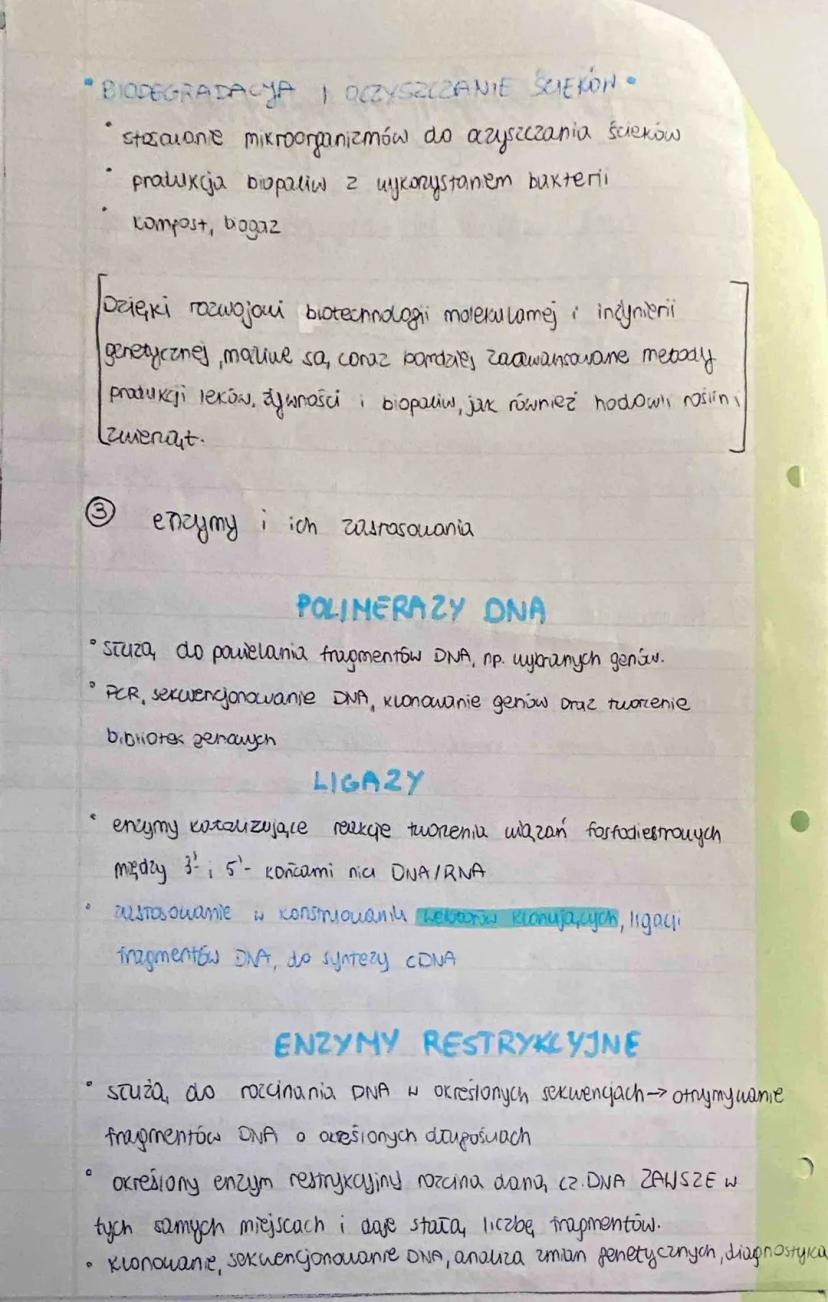 • BIODEGRADACJA I OCZYSZCZANIE ŚCIEKÓW •
• stosowanie mikroorganizmów do oczyszczania ścieków
• produkcja biopaliw z wykorzystaniem bakterii
• kompost, biogaz
Dzięki rozwojowi biotechnologii molekularnej i inżynierii
genetycznej, możliwe są coraz bardziej zaawansowane metody
produkcji leków, żywności i biopaliw, jak również hodowli roślin i
zwierząt.
③ enzymy i ich zastosowania
POLIMERAZY DNA
• służą do powielania fragmentów DNA, np. wybranych genów.
• PCR, sekwencjonowanie DNA, klonowanie genów oraz tworzenie
bibliotek genowych
LIGAZY
• enzymy katalizujące reakcje tworzenia wiązań fosfodiestrowych
między 3'- i 5'- końcami nici DNA/RNA
• zastosowanie w konstruowaniu wektorów klonujących, ligacji
fragmentów DNA, do syntezy cDNA
ENZYMY RESTRYKCYJNE
• służą do rozcinania DNA w określonych sekwencjach → otrzymywanie
fragmentów DNA o określonych długościach
• określony enzym restrykcyjny rozcina daną cz. DNA ZAWSZE w
tych samych miejscach i daje stałą liczbę fragmentów.
• klonowanie, sekwencjonowanie DNA, analiza zmian genetycznych, diagnostyka